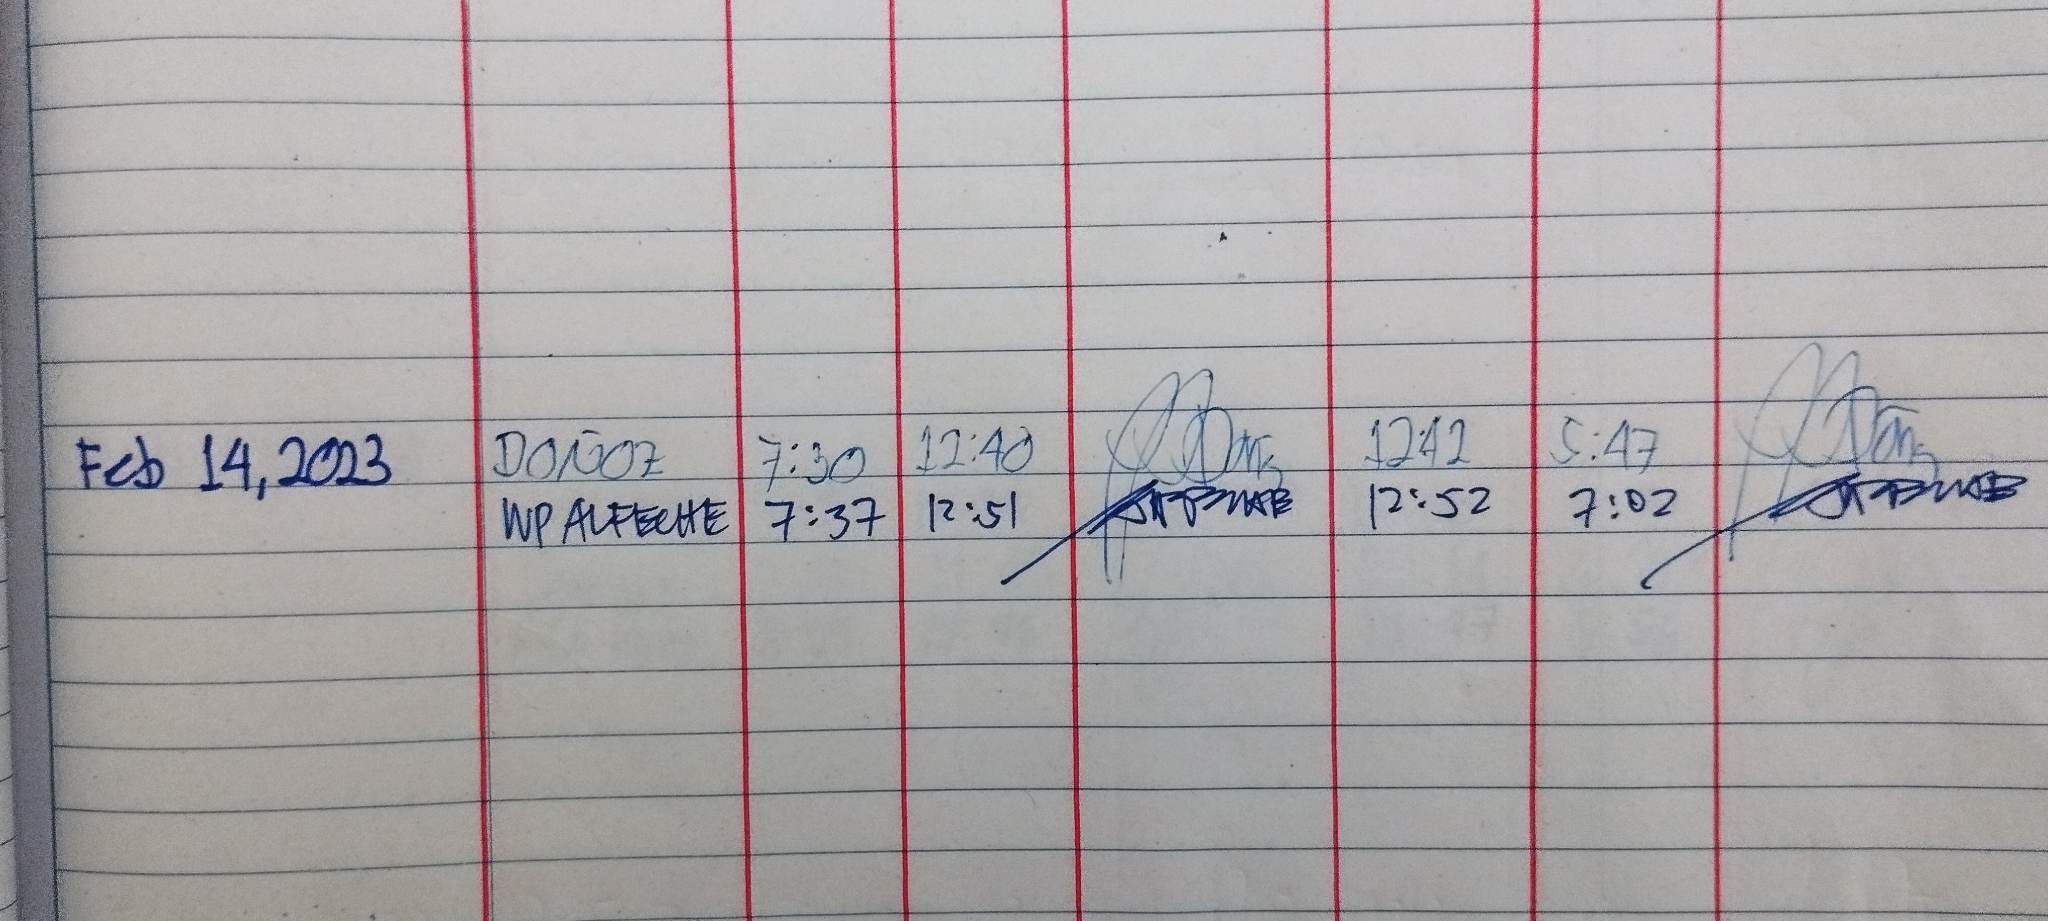 Feb 14, 2023 DOÑOZ 7:30 12:40 12:42 5:47
WP ALFECHE 7:37 12:51 12:52 7:02